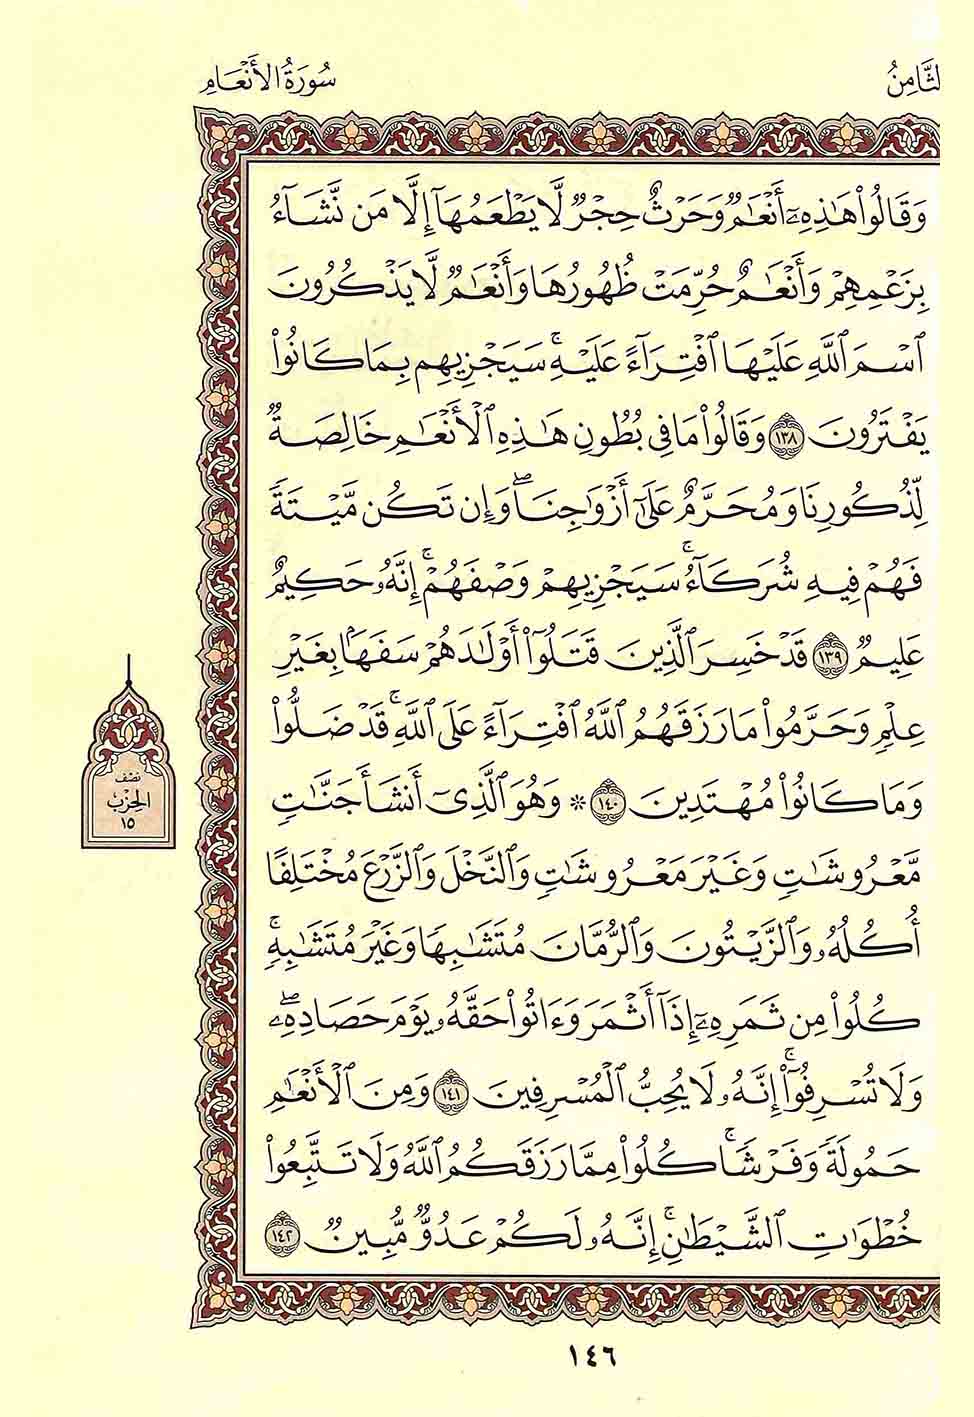 سُورَةُ الأَنْعَامِ
الثَّامِنُ
وَقَالُوا۟ هَٰذِهِۦٓ أَنْعَٰمٌ وَحَرْثٌ حِجْرٌ لَّا يَطْعَمُهَآ إِلَّا مَن نَّشَآءُ
بِزَعْمِهِمْ وَأَنْعَٰمٌ حُرِّمَتْ ظُهُورُهَا وَأَنْعَٰمٌ لَّا يَذْكُرُونَ
ٱسْمَ ٱللَّهِ عَلَيْهَا ٱفْتِرَآءً عَلَيْهِ ۚ سَيَجْزِيهِم بِمَا كَانُوا۟
يَفْتَرُونَ ١٣٨ وَقَالُوا۟ مَا فِى بُطُونِ هَٰذِهِ ٱلْأَنْعَٰمِ خَالِصَةٌ
لِّذُكُورِنَا وَمُحَرَّمٌ عَلَىٰٓ أَزْوَٰجِنَا ۖ وَإِن تَكُن مَّيْتَةً
فَهُمْ فِيهِ شُرَكَآءُ ۚ سَيَجْزِيهِمْ وَصْفَهُمْ ۚ إِنَّهُۥ حَكِيمٌ
عَلِيمٌ ١٣٩ قَدْ خَسِرَ ٱلَّذِينَ قَتَلُوٓا۟ أَوْلَٰدَهُمْ سَفَهًۢا بِغَيْرِ
عِلْمٍ وَحَرَّمُوا۟ مَا رَزَقَهُمُ ٱللَّهُ ٱفْتِرَآءً عَلَى ٱللَّهِ ۚ قَدْ ضَلُّوا۟
وَمَا كَانُوا۟ مُهْتَدِينَ ١٤٠ ۞ وَهُوَ ٱلَّذِىٓ أَنشَأَ جَنَّٰتٍ
مَّعْرُوشَٰتٍ وَغَيْرَ مَعْرُوشَٰتٍ وَٱلنَّخْلَ وَٱلزَّرْعَ مُخْتَلِفًا
أُكُلُهُۥ وَٱلزَّيْتُونَ وَٱلرُّمَّانَ مُتَشَٰبِهًا وَغَيْرَ مُتَشَٰبِهٍ ۚ
كُلُوا۟ مِن ثَمَرِهِۦٓ إِذَآ أَثْمَرَ وَءَاتُوا۟ حَقَّهُۥ يَوْمَ حَصَادِهِۦ ۖ
وَلَا تُسْرِفُوٓا۟ ۚ إِنَّهُۥ لَا يُحِبُّ ٱلْمُسْرِفِينَ ١٤١ وَمِنَ ٱلْأَنْعَٰمِ
حَمُولَةً وَفَرْشًا ۚ كُلُوا۟ مِمَّا رَزَقَكُمُ ٱللَّهُ وَلَا تَتَّبِعُوا۟
خُطُوَٰتِ ٱلشَّيْطَٰنِ ۚ إِنَّهُۥ لَكُمْ عَدُوٌّ مُّبِينٌ ١٤٢
نِصْف
الحِزْب
١٥
١٤٦